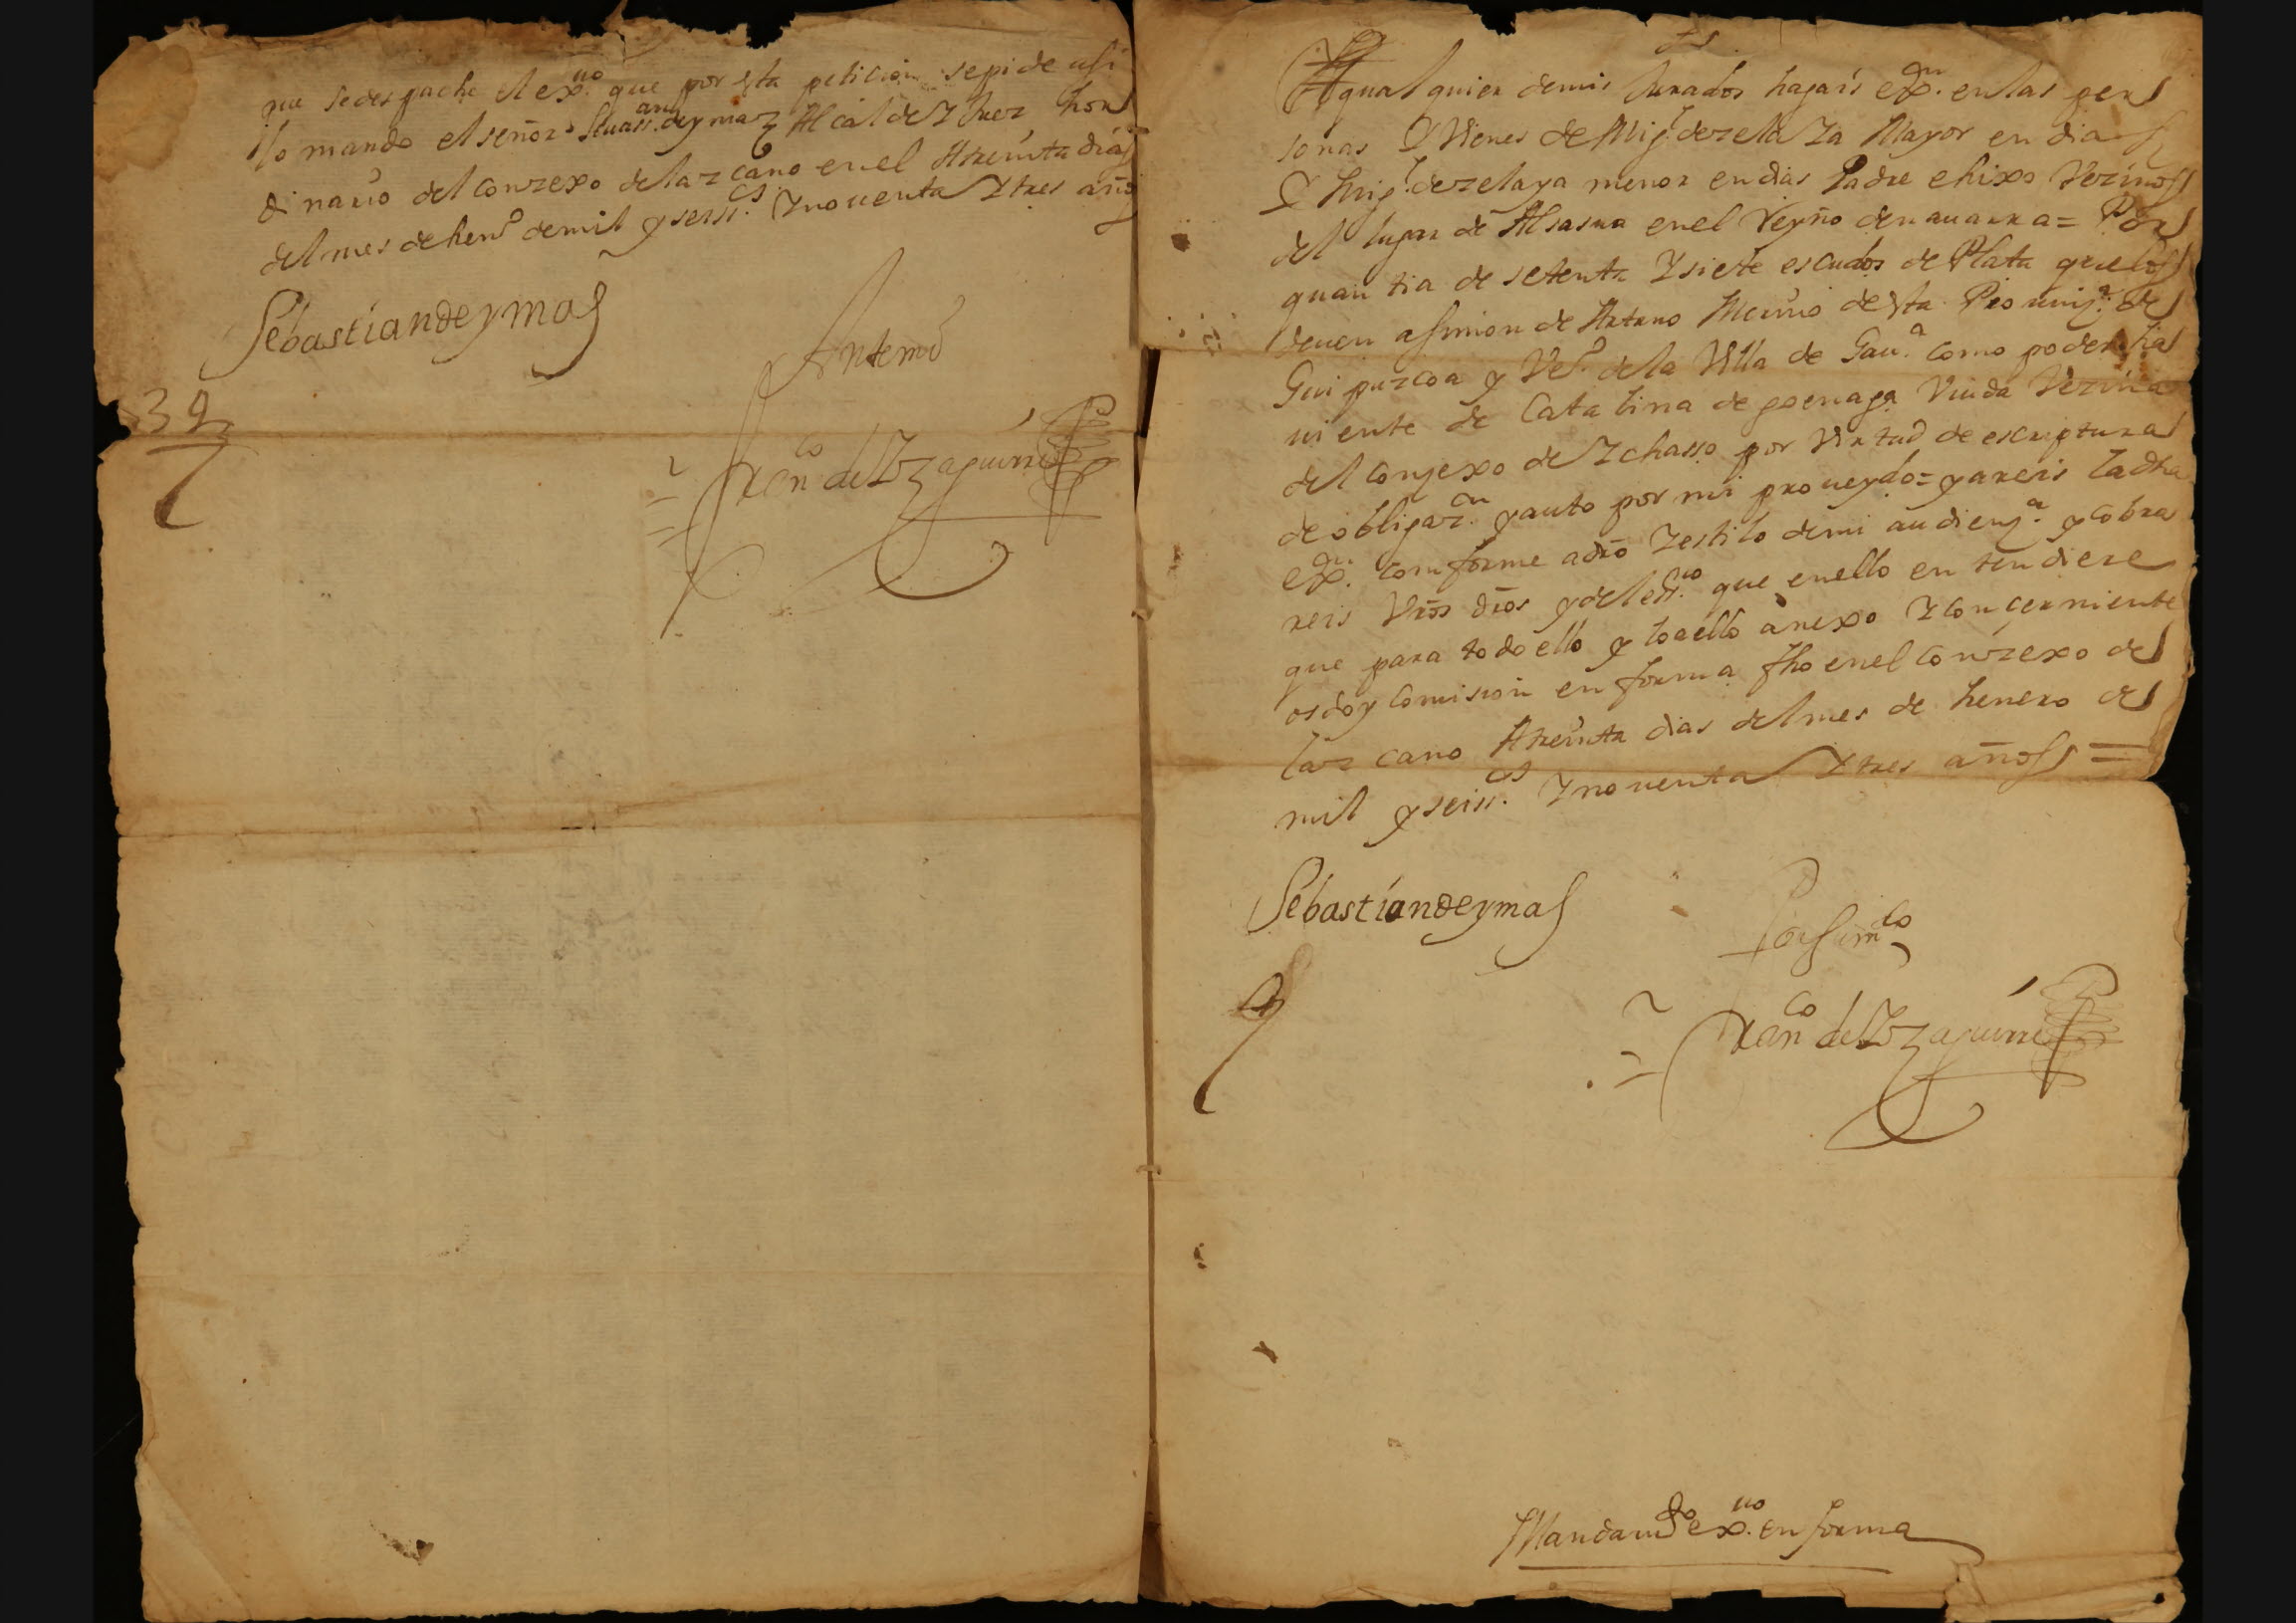 que sedespache el ex.uo que por esta peticion se pide assi
lo mando el señor Seuass.an de ymaz Alcalde Y Juez hor
dinario del conzexo de lazcano en el A treinta dias
del mes de hen.o de mil y seiss.os Y nouenta Y tres años
Sebastian de ymas
Ante mi
32
Fran.co de Yrzaguirre
A qualquier de mis Jurados hagais ex.on en las per
sonas Y Vienes de Mig.l de zelaYa Mayor en dias
Y Mig.l de zelaya menor en dias Padre e hixo Vezinos
del lugar de Alsasua en el Reyño de nauarra = Por
quantia de setenta Y siete escudos de Plata que los
deuen a simon de Arrano Merino de esta Prouinz.a de
Guipuzcoa y Vez.o de la Villa de Gau.a como poder ha
uiente de Catalina de goenaga Viuda Vezina
del conzexo de Ychasso por Virtud de escriptura
de obligaz.on y auto por mi proueydo = y areis la dha
ex.on comforme a dro Y estilo de mi audienz.a y cobra
reis Vros dros y del ess.no que en ello entendiere
que para todo ello y lo a ello anexo Y concerniente
os doy comision en forma fho en el conzexo de
lazcano A treinta dias del mes de henero de
mil y seiss.os Y nouenta Y tres años =
Sebastian de ymas
Por su m.do
Fran.co de Yrzaguirre
Mandam.to ex.uo en forma